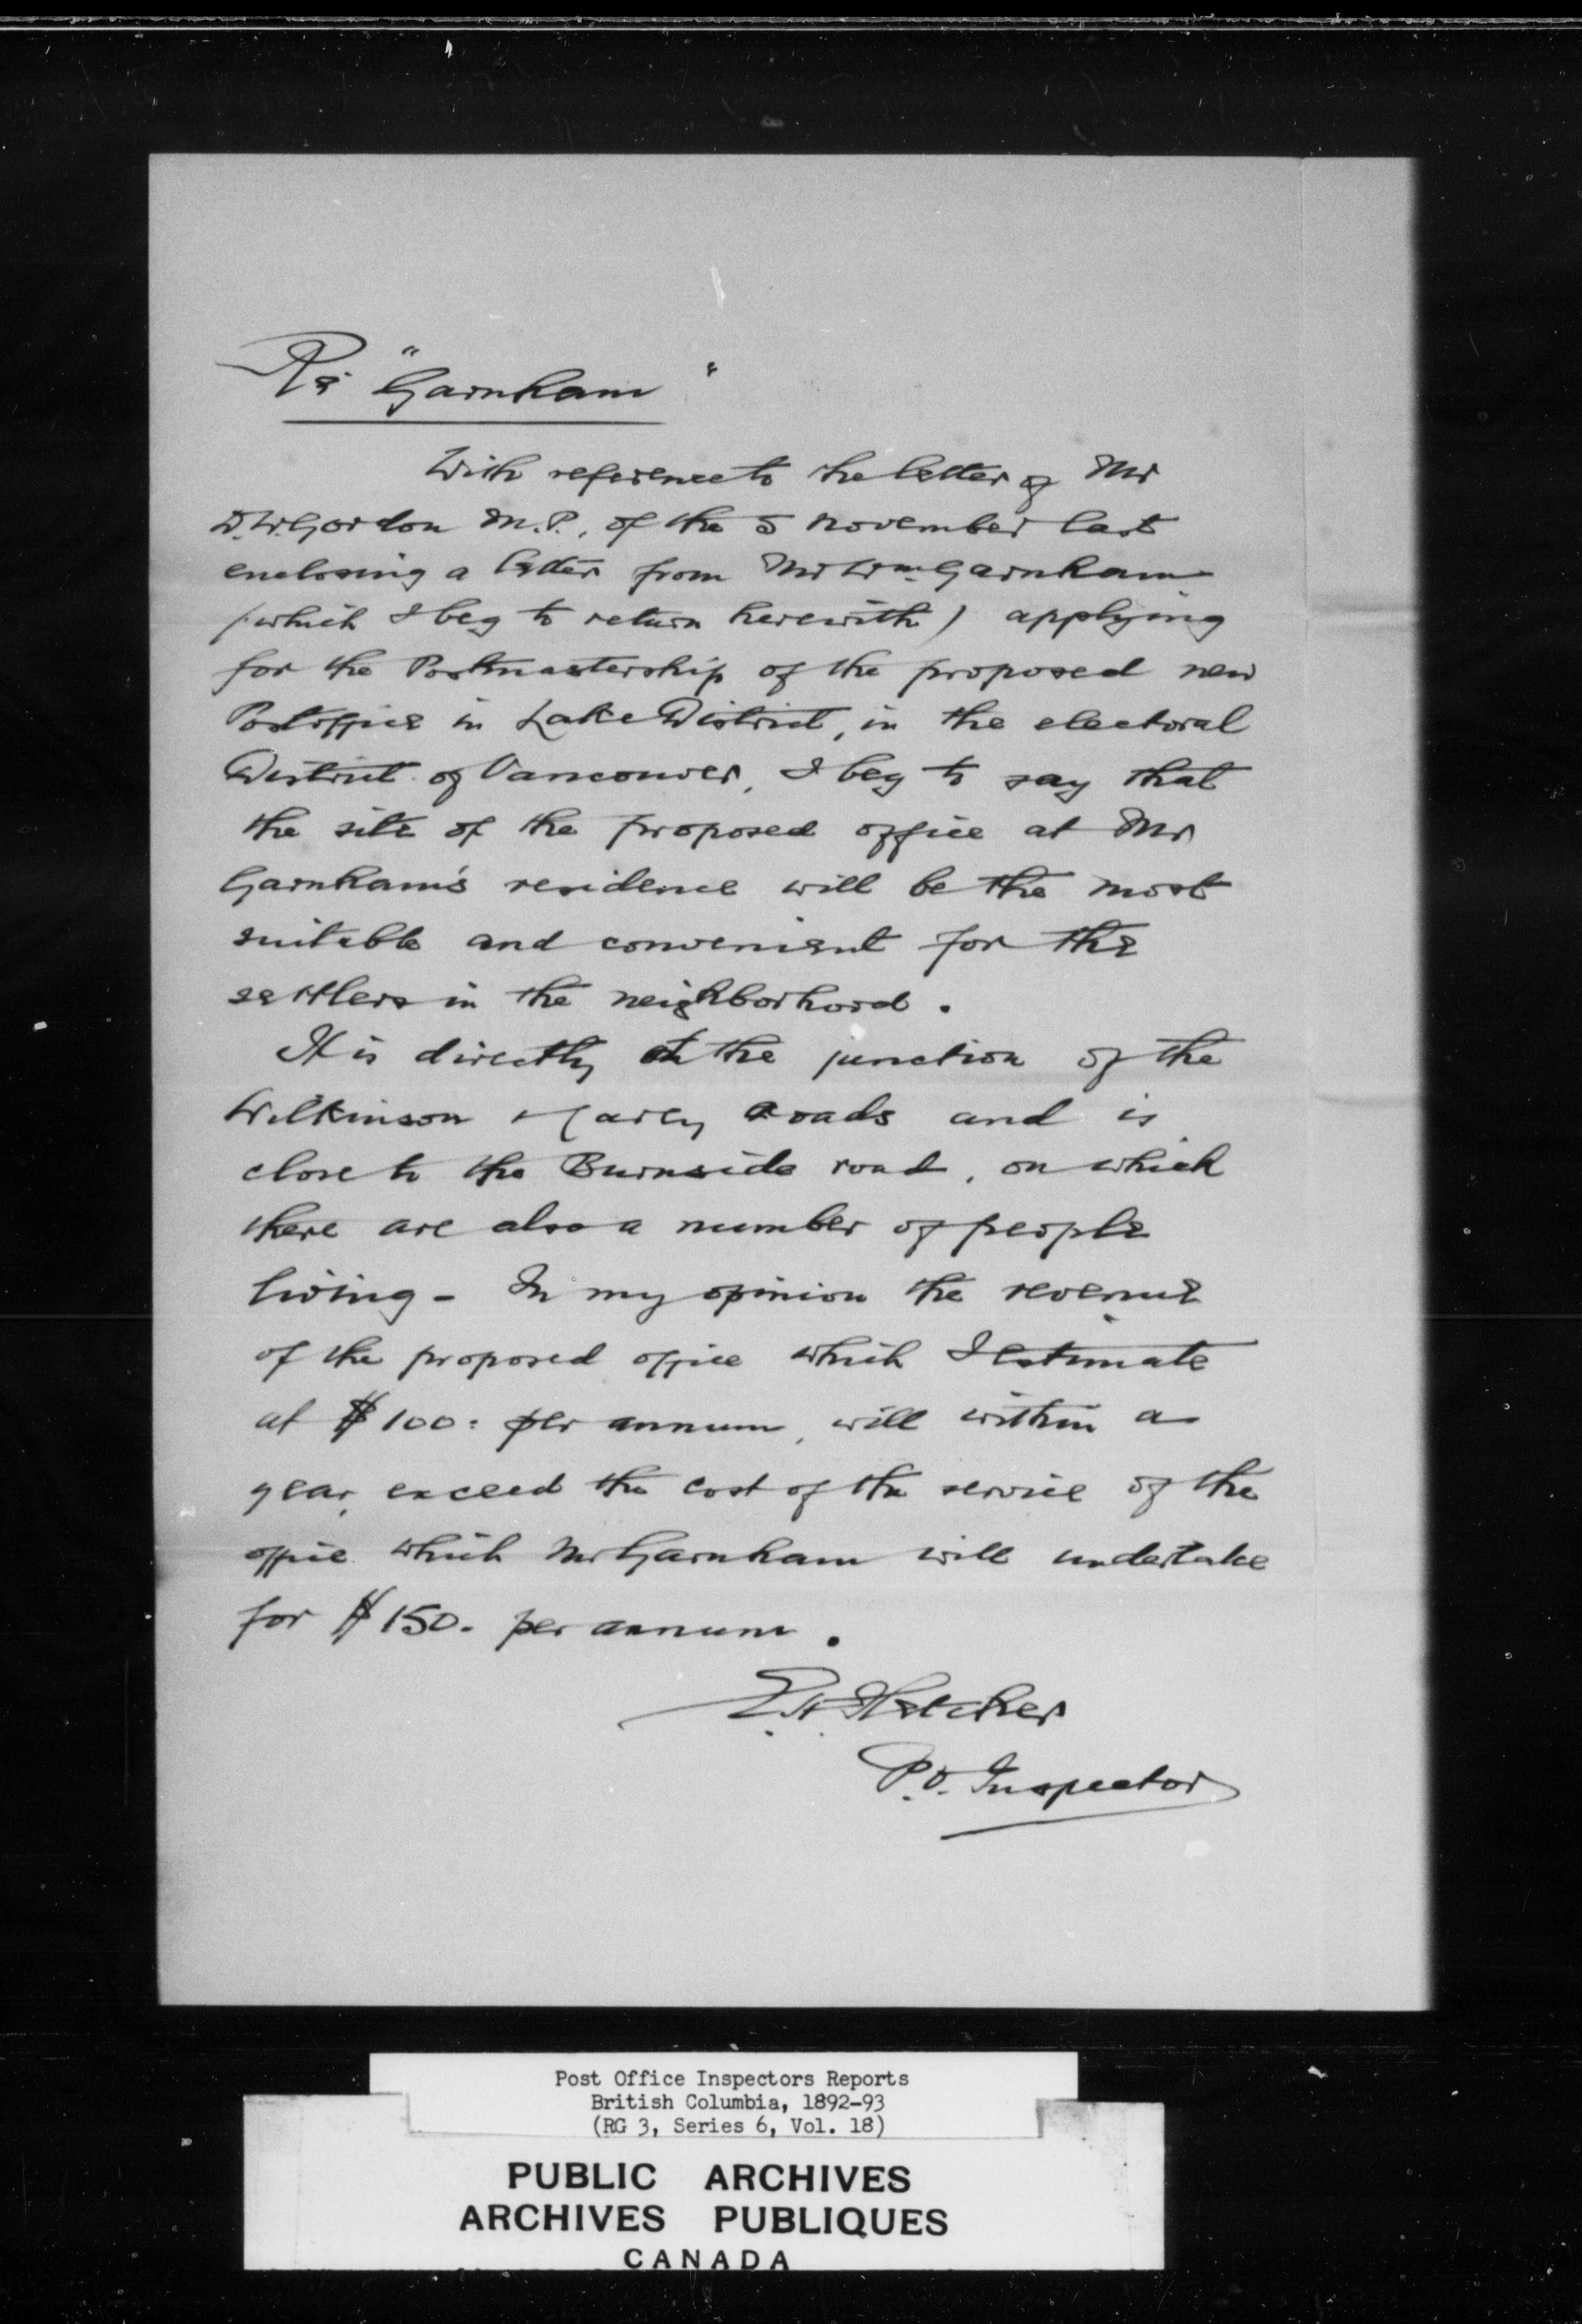 Re "Garnham"
With reference to the letter of Mr
D.W. Gordon M.P., of the 5 November last
enclosing a letter from Mr Wm Garnham
(which I beg to return herewith) applying
for the Postmastership of the proposed new
Postoffice in Lake District, in the electoral
District of Vancouver, I beg to say that
the site of the proposed office at Mr
Garnham's residence will be the most
suitable and convenient for the
settlers in the neighborhood.
It is directly at the junction of the
Wilkinson & Carey Roads and is
close to the Burnside road, on which
there are also a number of people
living - In my opinion the revenue
of the proposed office which I estimate
at $100: per annum, will within a
year, exceed the cost of the service of the
office which Mr Garnham will undertake
for $150. per annum.
E.H. Fletcher
P.O. Inspector
Post Office Inspectors Reports
British Columbia, 1892-93
(RG 3, Series 6, Vol. 18)
PUBLIC ARCHIVES
ARCHIVES PUBLIQUES
CANADA